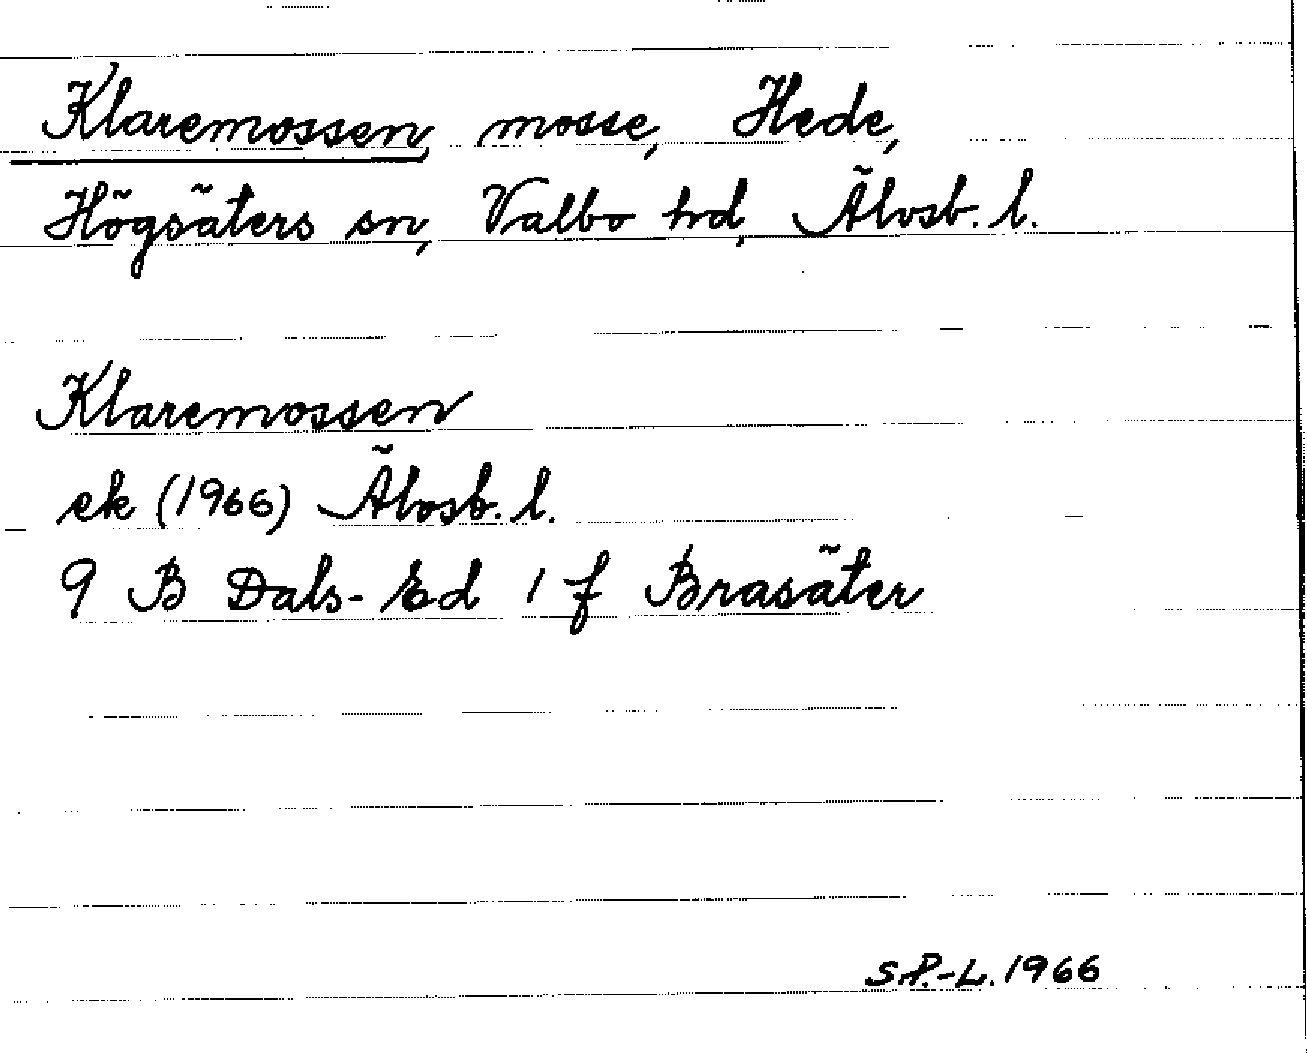 Klaremossen, mosse, Hede,
Högsäters sn, Valbo hd, Älvsb. l.
Klaremossen
ek (1966) Älvsb. l.
9 B Dals-Ed 1 f Brasäter
S.P.-L. 1966